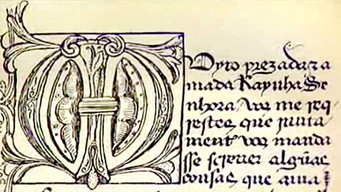 Muyto prezada z a
mada Raynha Se
nhora vos me req
restes que junta
ment vos manda
sse screver algũas
cousas que avia